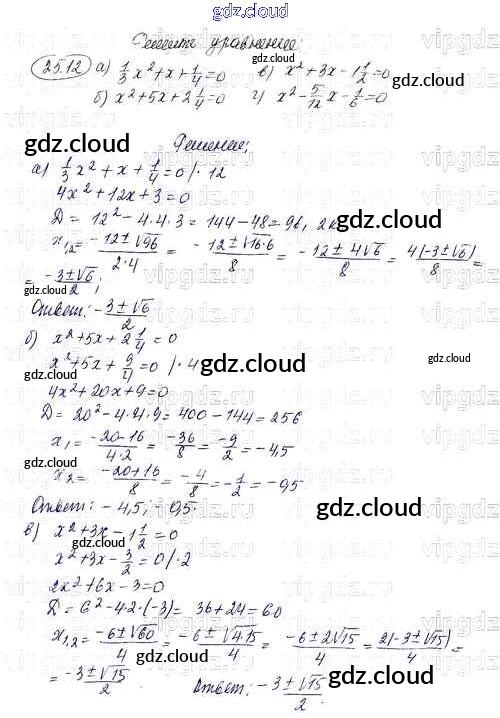 gdz.cloud
Решите уравнение:
25.12 а) 1/3 x² + x + 1/4 = 0 в) x² + 3x - 1 1/2 = 0
б) x² + 5x + 2 1/4 = 0 г) x² - 5/12 x - 1/6 = 0
gdz.cloud
gdz.cloud
Решение:
gdz.cloud
а) 1/3 x² + x + 1/4 = 0 /· 12
4x² + 12x + 3 = 0
gdz.cloud
D = 12² - 4·4·3 = 144 - 48 = 96, 2к
x₁,₂ = (-12 ± √96)/(2·4) = (-12 ± √(16·6))/8 = (-12 ± 4√6)/8 = 4(-3 ± √6)/8 =
= (-3 ± √6)/2;
gdz.cloud
Ответ: (-3 ± √6)/2
б) x² + 5x + 2 1/4 = 0
x² + 5x + 9/4 = 0 /· 4
gdz.cloud
gdz.cloud
gdz.cloud
4x² + 20x + 9 = 0
D = 20² - 4·4·9 = 400 - 144 = 256
x₁ = (-20-16)/(4·2) = -36/8 = -9/2 = -4,5
gdz.cloud
x₂ = (-20+16)/8 = -4/8 = -1/2 = -0,5
gdz.cloud
Ответ: -4,5; -0,5.
gdz.cloud
в) x² + 3x - 1 1/2 = 0
x² + 3x - 3/2 = 0 /· 2
gdz.cloud
2x² + 6x - 3 = 0
D = 6² - 4·2·(-3) = 36 + 24 = 60
gdz.cloud
x₁,₂ = (-6 ± √60)/4 = (-6 ± √(4·15))/4 = (-6 ± 2√15)/4 = 2(-3 ± √15)/4 =
gdz.cloud
= (-3 ± √15)/2 Ответ: (-3 ± √15)/2.
gdz.cloud